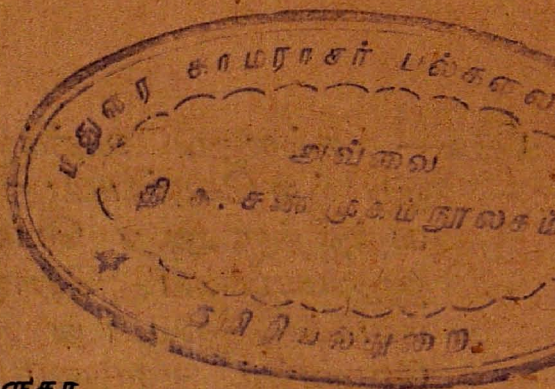 மதுரை காமராசர் பல்கலை
அவ்வை
தி. க. சண்முகம் நூலகம்
தமிழியல்துறை.